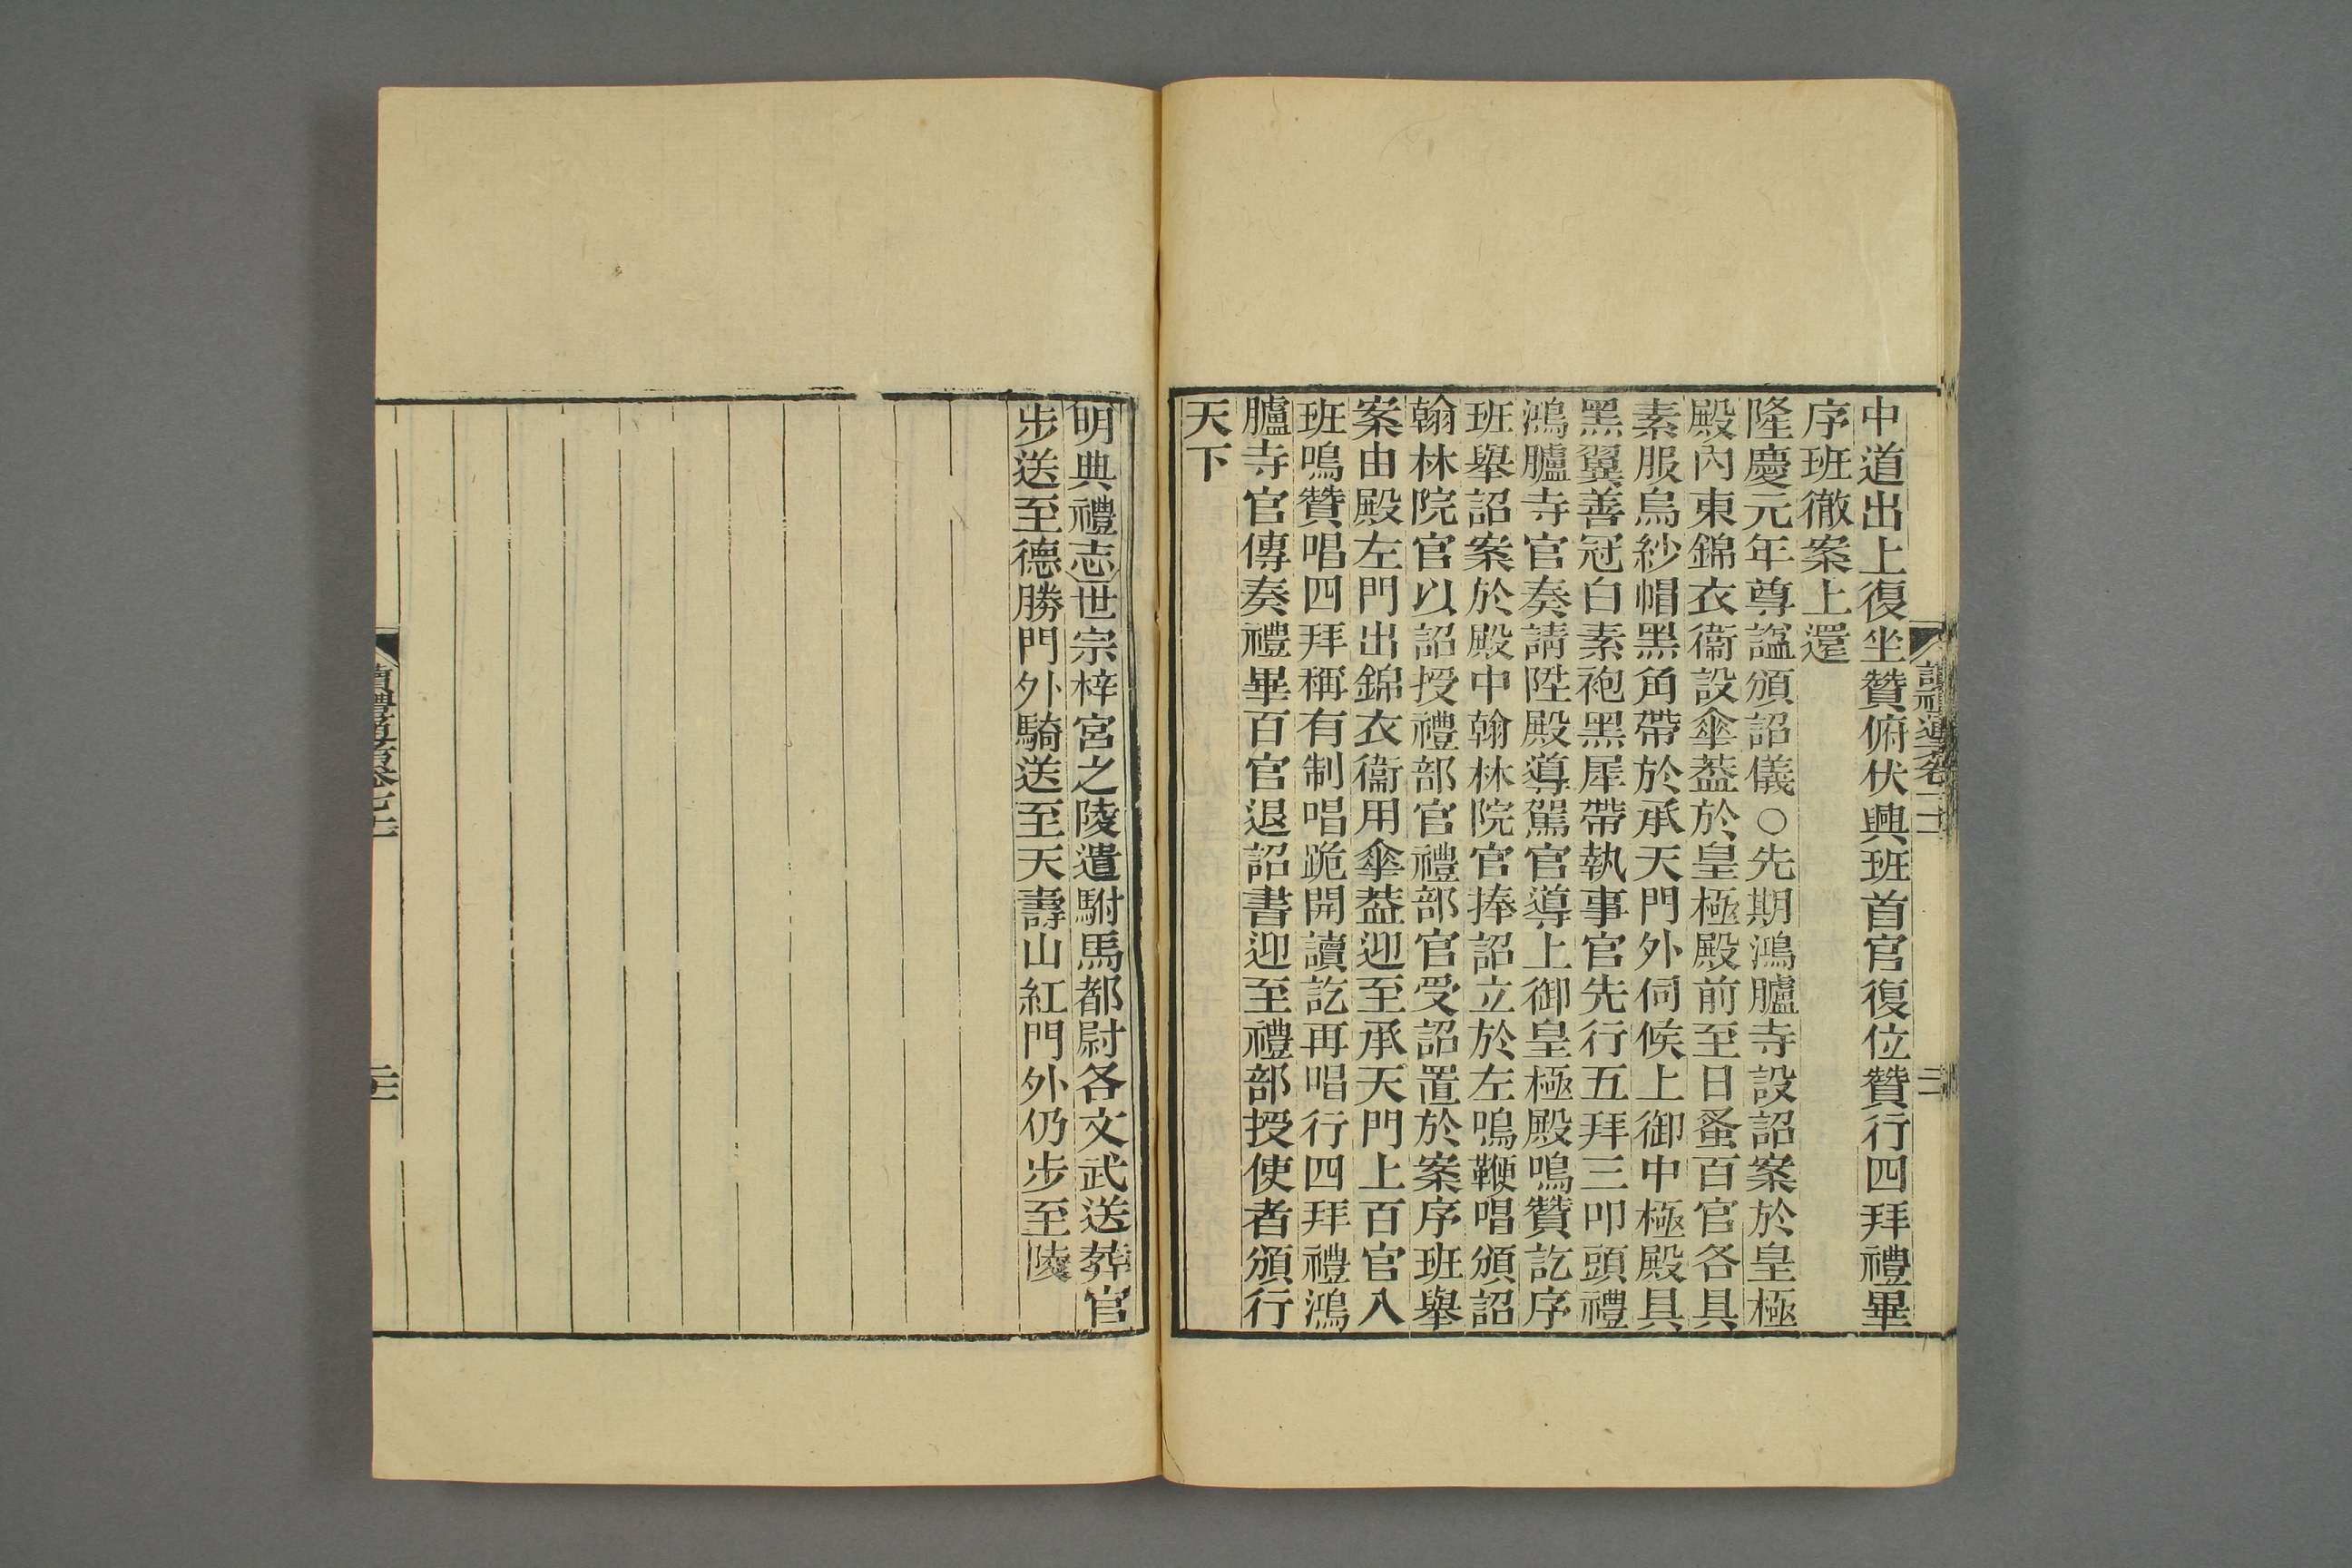 中道出上復坐贊俯伏興班首官復位贊行四拜禮畢
序班徹案上還
隆慶元年尊謚頒詔儀○先期鴻臚寺設詔案於皇極
殿內東錦衣衞設傘葢於皇極殿前至日蚤百官各具
素服烏紗帽黑角帶於承天門外伺候上御中極殿具
黑翼善冠白素袍黑犀帶執事官先行五拜三叩頭禮
鴻臚寺官奏請陞殿導駕官導上御皇極殿鳴贊訖序
班舉詔案於殿中翰林院官捧詔立於左鳴鞭唱頒詔
翰林院官以詔授禮部官禮部官受詔置於案序班舉
案由殿左門出錦衣衞用傘葢迎至承天門上百官入
班鳴贊唱四拜稱有制唱跪開讀訖再唱行四拜禮鴻
臚寺官傳奏禮畢百官退詔書迎至禮部授使者頒行
天下
明典禮志世宗梓宮之陵遣駙馬都尉各文武送葬官
步送至德勝門外騎送至天壽山紅門外仍步至陵